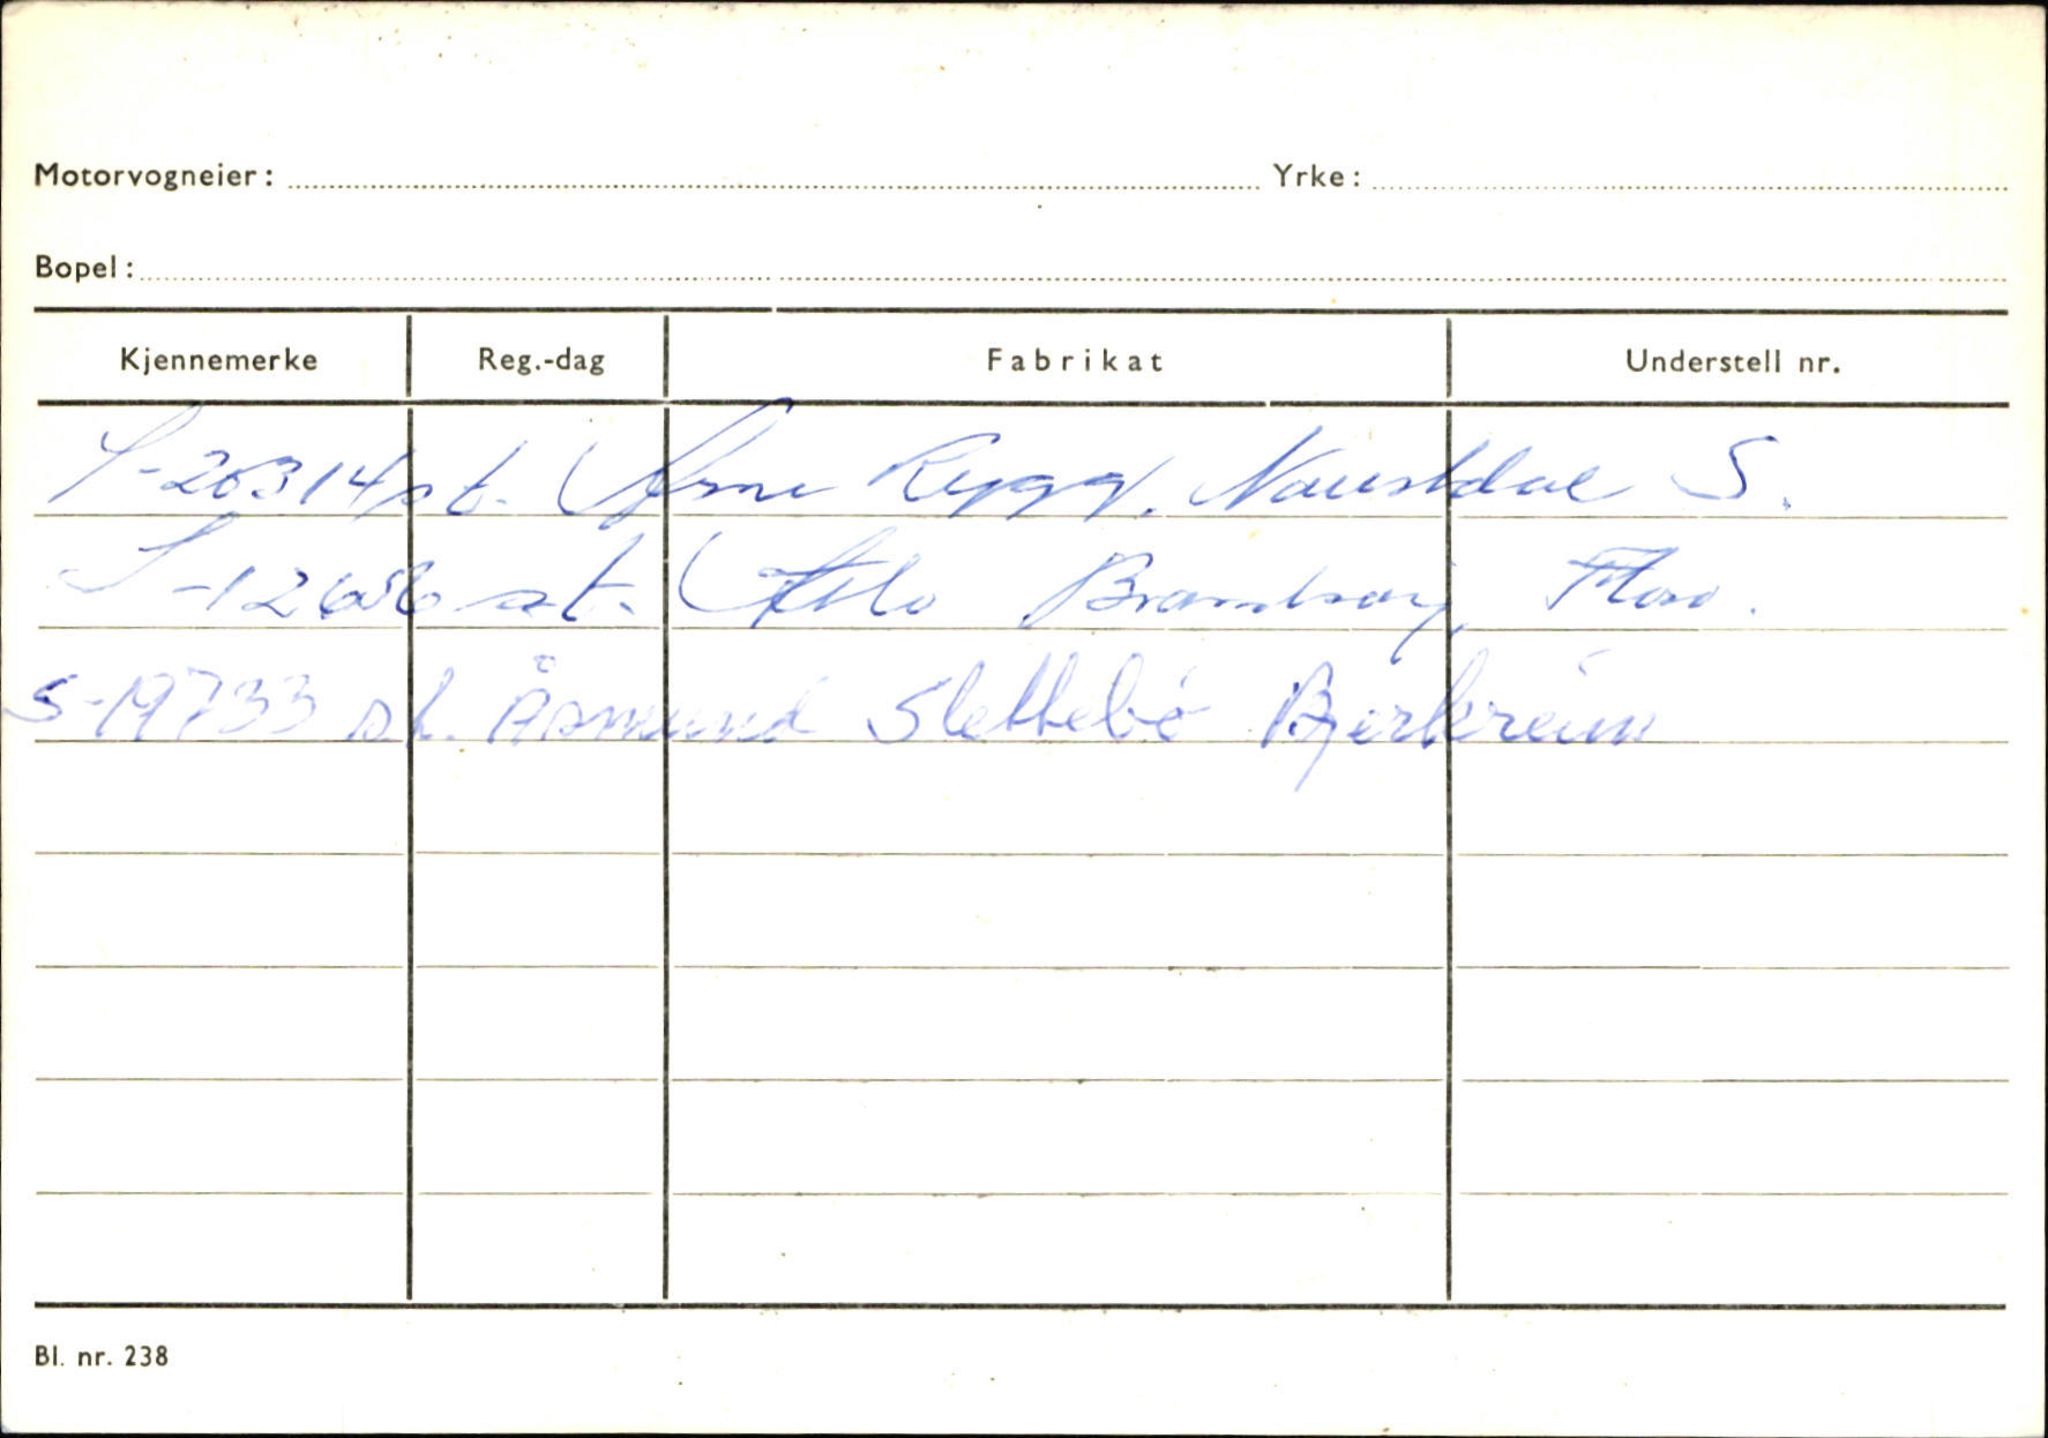 Motorvogneier: Yrke:
Bopel:
Kjennemerke Reg.-dag Fabrikat Understell nr.
S-26314 st. Arne Rygg, Naustdal S.
S-12656 st. Atle Florø.
S-19733 st. Åsmund Slettebö Bjerkreim
Bl. nr. 238